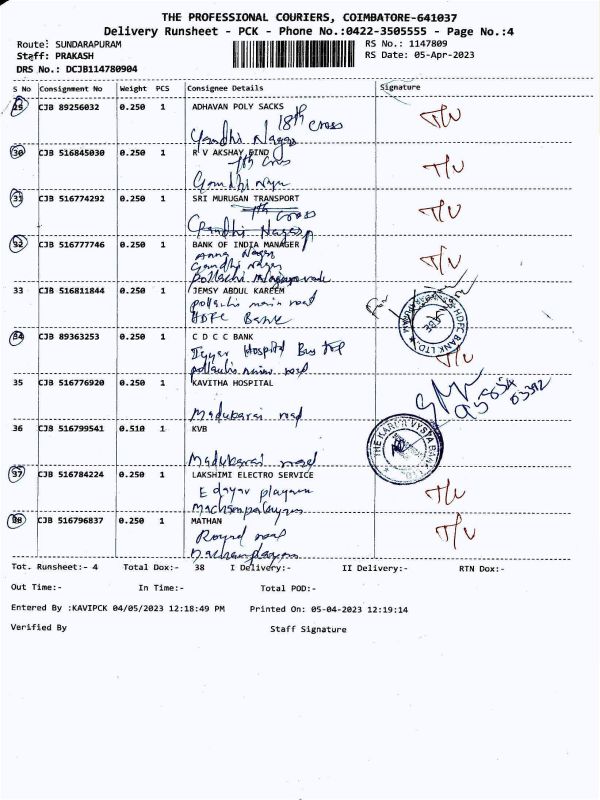 THE PROFESSIONAL COURIERS, COIMBATORE-641037
Delivery Runsheet - PCK - Phone No.:0422-3505555 - Page No.:4
Route: SUNDARAPURAM RS No.: 1147809
Staff: PRAKASH RS Date: 05-Apr-2023
DRS No.: DCJB114780904
S No Consignment No Weight PCS Consignee Details Signature
29 CJB 89256032 0.250 1 ADHAVAN POLY SACKS
18th Cross
Gandhi Nagar
30 CJB 516845030 0.250 1 R V AKSHAY BIND
7th Cross
Gandhi Nagar
31 CJB 516774292 0.250 1 SRI MURUGAN TRANSPORT
7th Cross
Gandhi Nagar
32 CJB 516777746 0.250 1 BANK OF INDIA MANAGER
Anna Nagar
Gandhi Nagar
Pollachi
33 CJB 516811844 0.250 1 JEMSY ABDUL KAREEM
pollachi main road
HDFC Bank
HDFC BANK LTD.
34 CJB 89363253 0.250 1 C D C C BANK
Hospital Bus
pollachi main road
35 CJB 516776920 0.250 1 KAVITHA HOSPITAL
Madukarai road
36 CJB 516799541 0.510 1 KVB
Madukarai road
THE KARUR VYSYA BANK
37 CJB 516784224 0.250 1 LAKSHIMI ELECTRO SERVICE
38 CJB 516796837 0.250 1 MATHAN
Round road
Tot. Runsheet:- 4 Total Dox:- 38 I Delivery:- II Delivery:- RTN Dox:-
Out Time:- In Time:- Total POD:-
Entered By :KAVIPCK 04/05/2023 12:18:49 PM Printed On: 05-04-2023 12:19:14
Verified By Staff Signature